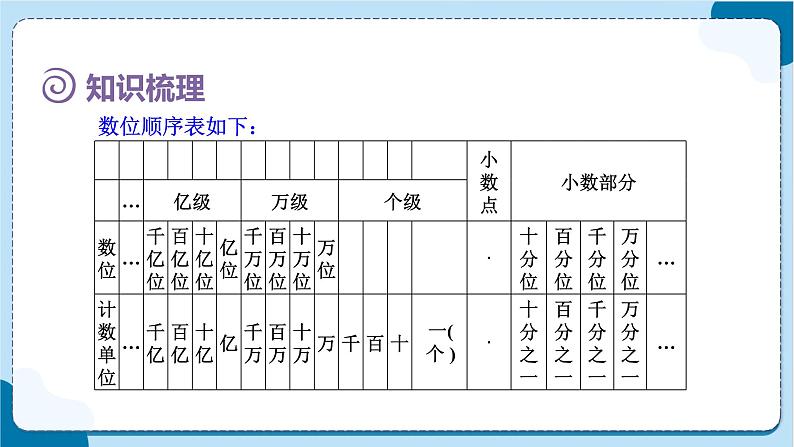 知识梳理
数位顺序表如下：
小数点 小数部分
… 亿级 万级 个级
数位 … 千亿位 百亿位 十亿位 亿位 千万位 百万位 十万位 万位 · 十分位 百分位 千分位 万分位 …
计数单位 … 千亿 百亿 十亿 亿 千万 百万 十万 万 千 百 十 一(个) · 十分之一 百分之一 千分之一 万分之一 …